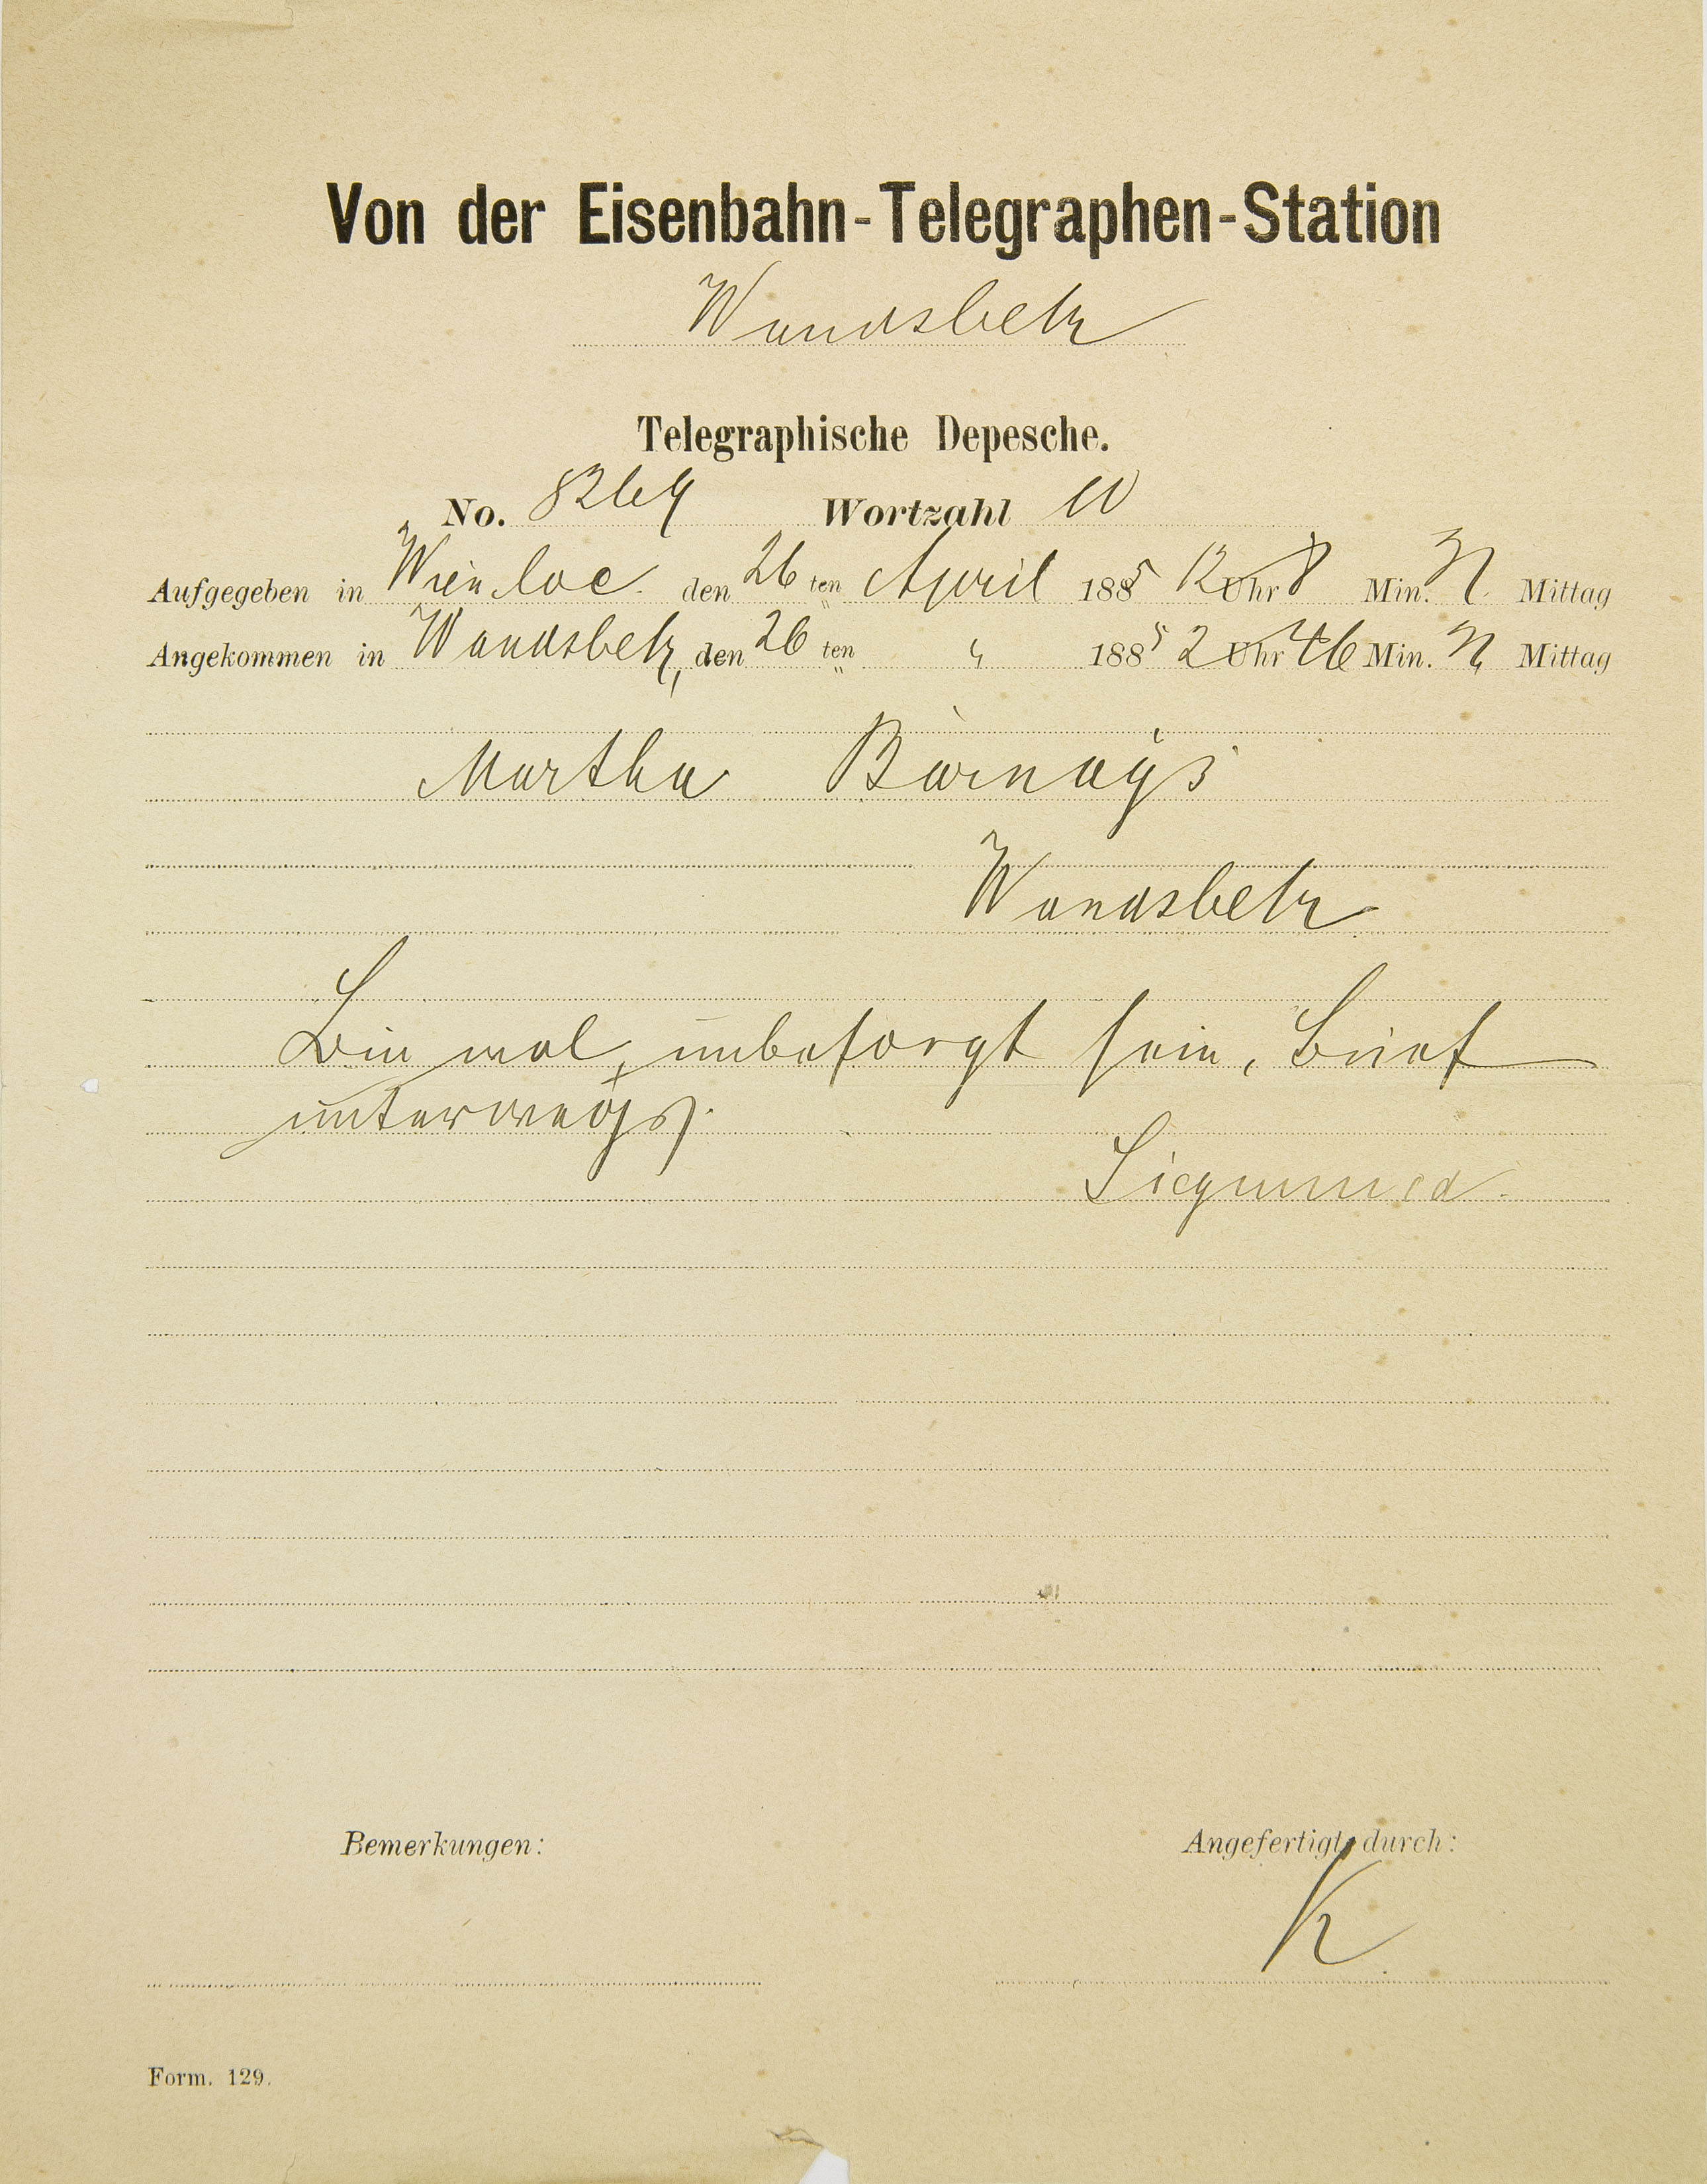 Von der Eisenbahn-Telegraphen-Station
Wandsbek
Telegraphische Depesche.
No. 8264 Wortzahl 10
Aufgegeben in Wien loc. den 26 ten April 1885 12 Uhr 8 Min. N. Mittag
Angekommen in Wandsbek, den 26 ten " 1885 2 Uhr 46 Min. N. Mittag
Martha Bernays
Wandsbek
Bin wol, unbesorgt sein, Brief
unterwegs.
Siegmund.
Bemerkungen:
Angefertigt durch:
K
Form. 129.